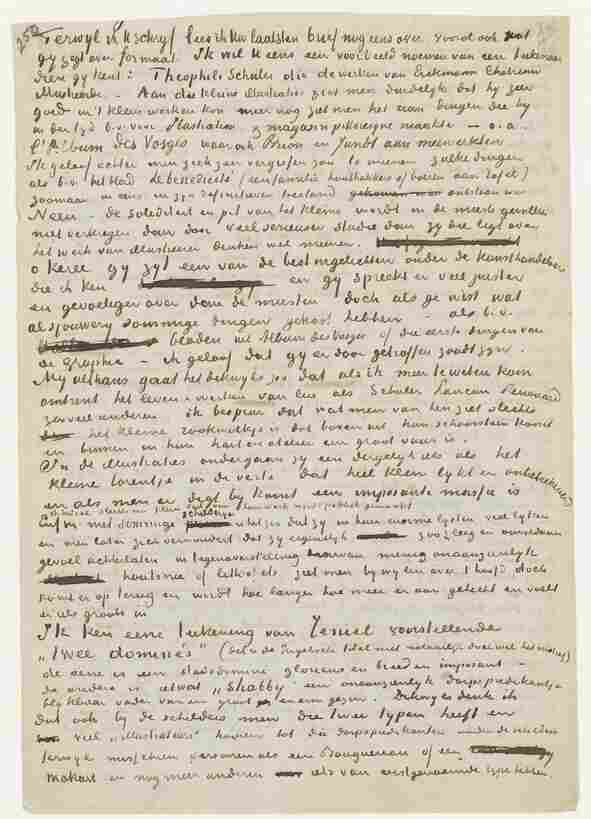 Terwyl ik U schryf lees ik Uw laatsten brief nog eens over vooral ook wat
gy zegt over formaat. Ik wil U eens een voorbeeld noemen van een teekenaar
dien gy kent: Theophile Schuler die de werken van Erckmann Chatrian
illustreerde. – Aan die kleine illustraties ziet men duidelyk dat hy zeer
goed in 't klein werken kon meer nog ziet men het aan dingen die hy
in der tyd b.v. voor Illustration & magasin pittoresque maakte – o.a.
l'Album des Vosges waaraan Brion en Jundt aan meewerkten
Ik geloof echter men zich zou vergissen zou te meenen zulke dingen
als b.v. het blad de benedicité (een familie houthakkers of boeren aan tafel)
zoomaar in eens in zyn definitieven toestand ontstaan was
Neen – de soliditeit en pit van het kleine wordt in de meeste gevallen
niet verkregen dan door veel serieuser studie dan zy die ligt over
het werk van illustreeren denken wel meenen.
o kerel gy zyt een van de best ingelichten onder de kunsthandelaars
die ik ken en gy spreekt er veel juister
en gevoeliger over dan de meesten doch als ge wist wat
al sjouwery sommige dingen gekost hebben – als b.v.
bladen uit Album des Vosges of die eerste dingen van
de Graphic – ik geloof dat gy er door getroffen zoudt zyn.
My althans gaat het dikwyls zoo dat als ik meer te weten kom
omtrent het leven & werken van lui als Schuler Lançon Renouard
zooveel anderen ik begryp dat wat men van hen ziet slechts
het kleine rookwolkje is dat boven uit hun schoorsteen komt
en binnen in hun hart en atelier een groot vuur is.
In de illustraties ondergaan zy een dergelyk iets als het
kleine torentje in de verte dat heel klein lykt en onbeteekenend
en als men er digt by komt een imposante massa is
Enfin met sommige schilderyen is het zoo dat zy in hun enorme lysten veel lyken
en men later zich verwondert dat zy eigenlyk zoo'n leeg en onvoldaan
gevoel achterlaten in tegenoverstelling daarvan menig onaanzienlyk
houtsnee of litho &c. ziet men by wylen over 't hoofd doch
komt er op terug en wordt hoe langer hoe meer er aan gehecht en voelt
er iets groots in
Ik ken eene teekening van Tenniel voorstellende
„Twee dominés” (dat is de Engelsche titel niet
die eene is een stadsdominé glorieus en breed en imposant –
de andere is ietwat „Shabby” een onaanzienlyk dorpspredikantje
blykbaar vader van een groot en arm gezin. Dikwyls denk ik
dat ook by de schilders men die twee typen heeft en
veel „illustrateurs” hooren tot die dorpspredikanten onder de schilders
terwyl misschien personen als een Bouguereau of een
Makart en nog meer anderen iets van eerstgenoemde type hebben.